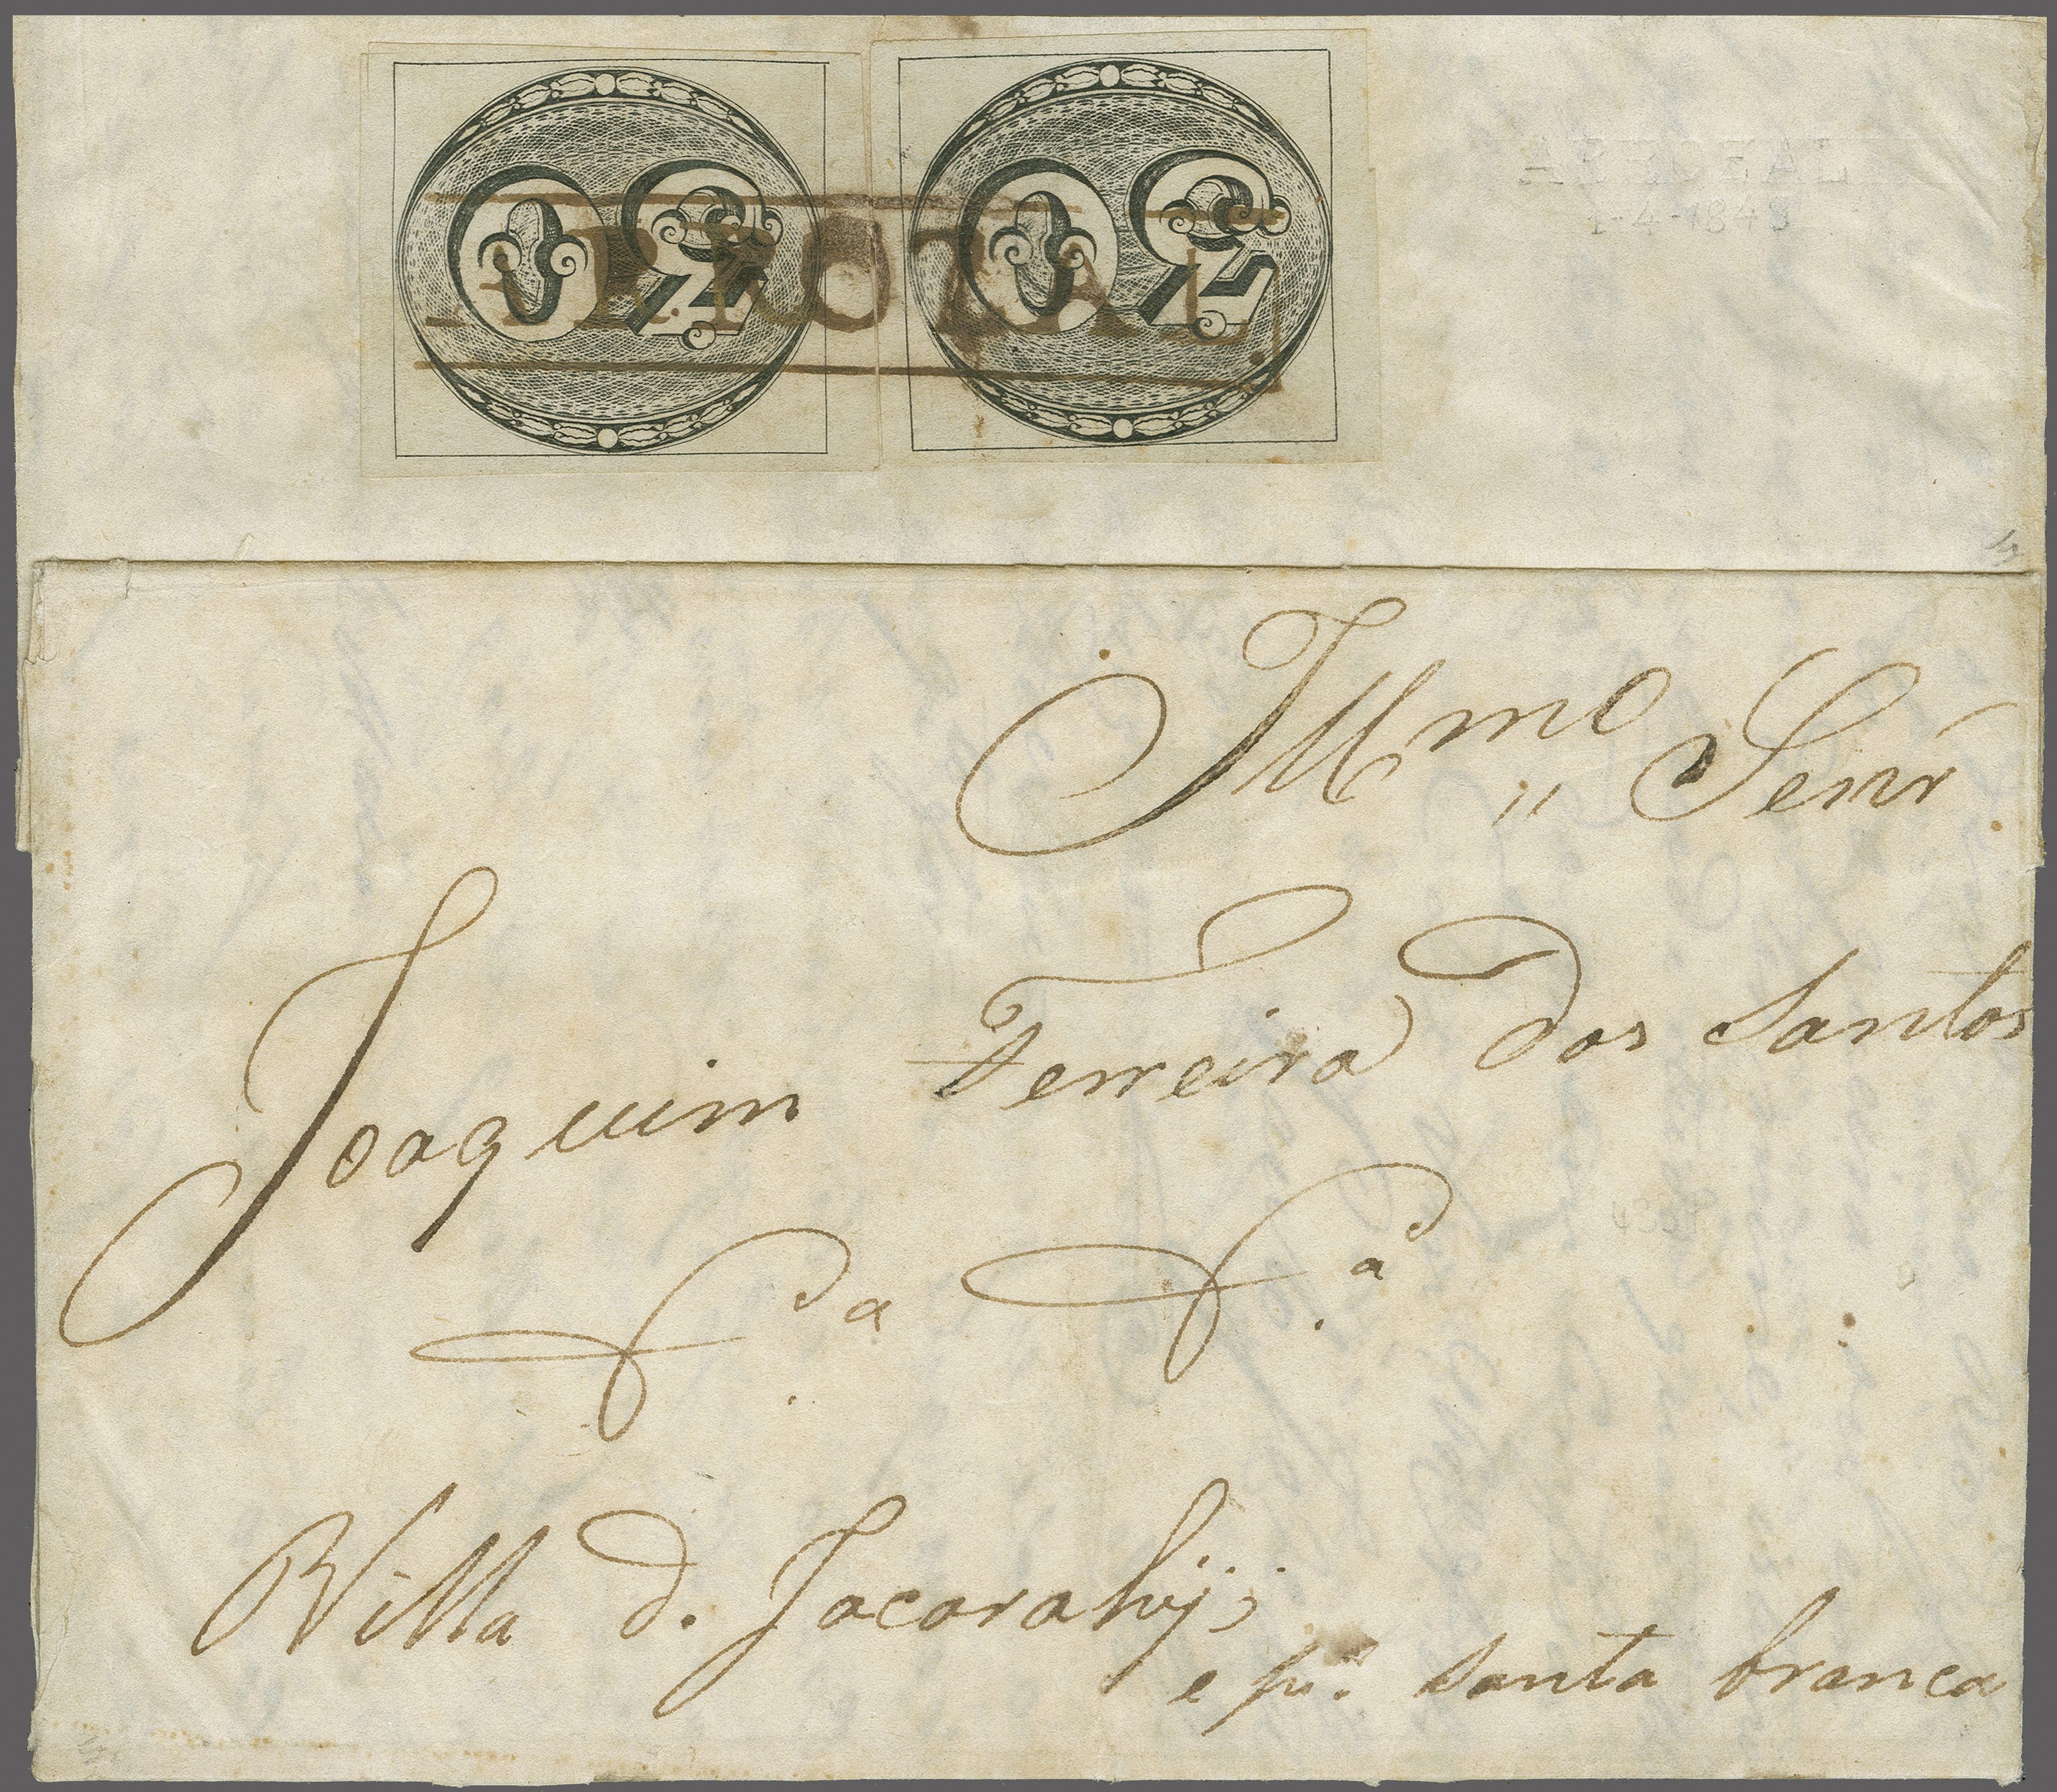 30 30
ARROZAL
Illmo „ Senr
Joaquim Ferreira dos Santos
Villa d. Jacarahÿ;
e pa. Santa branca